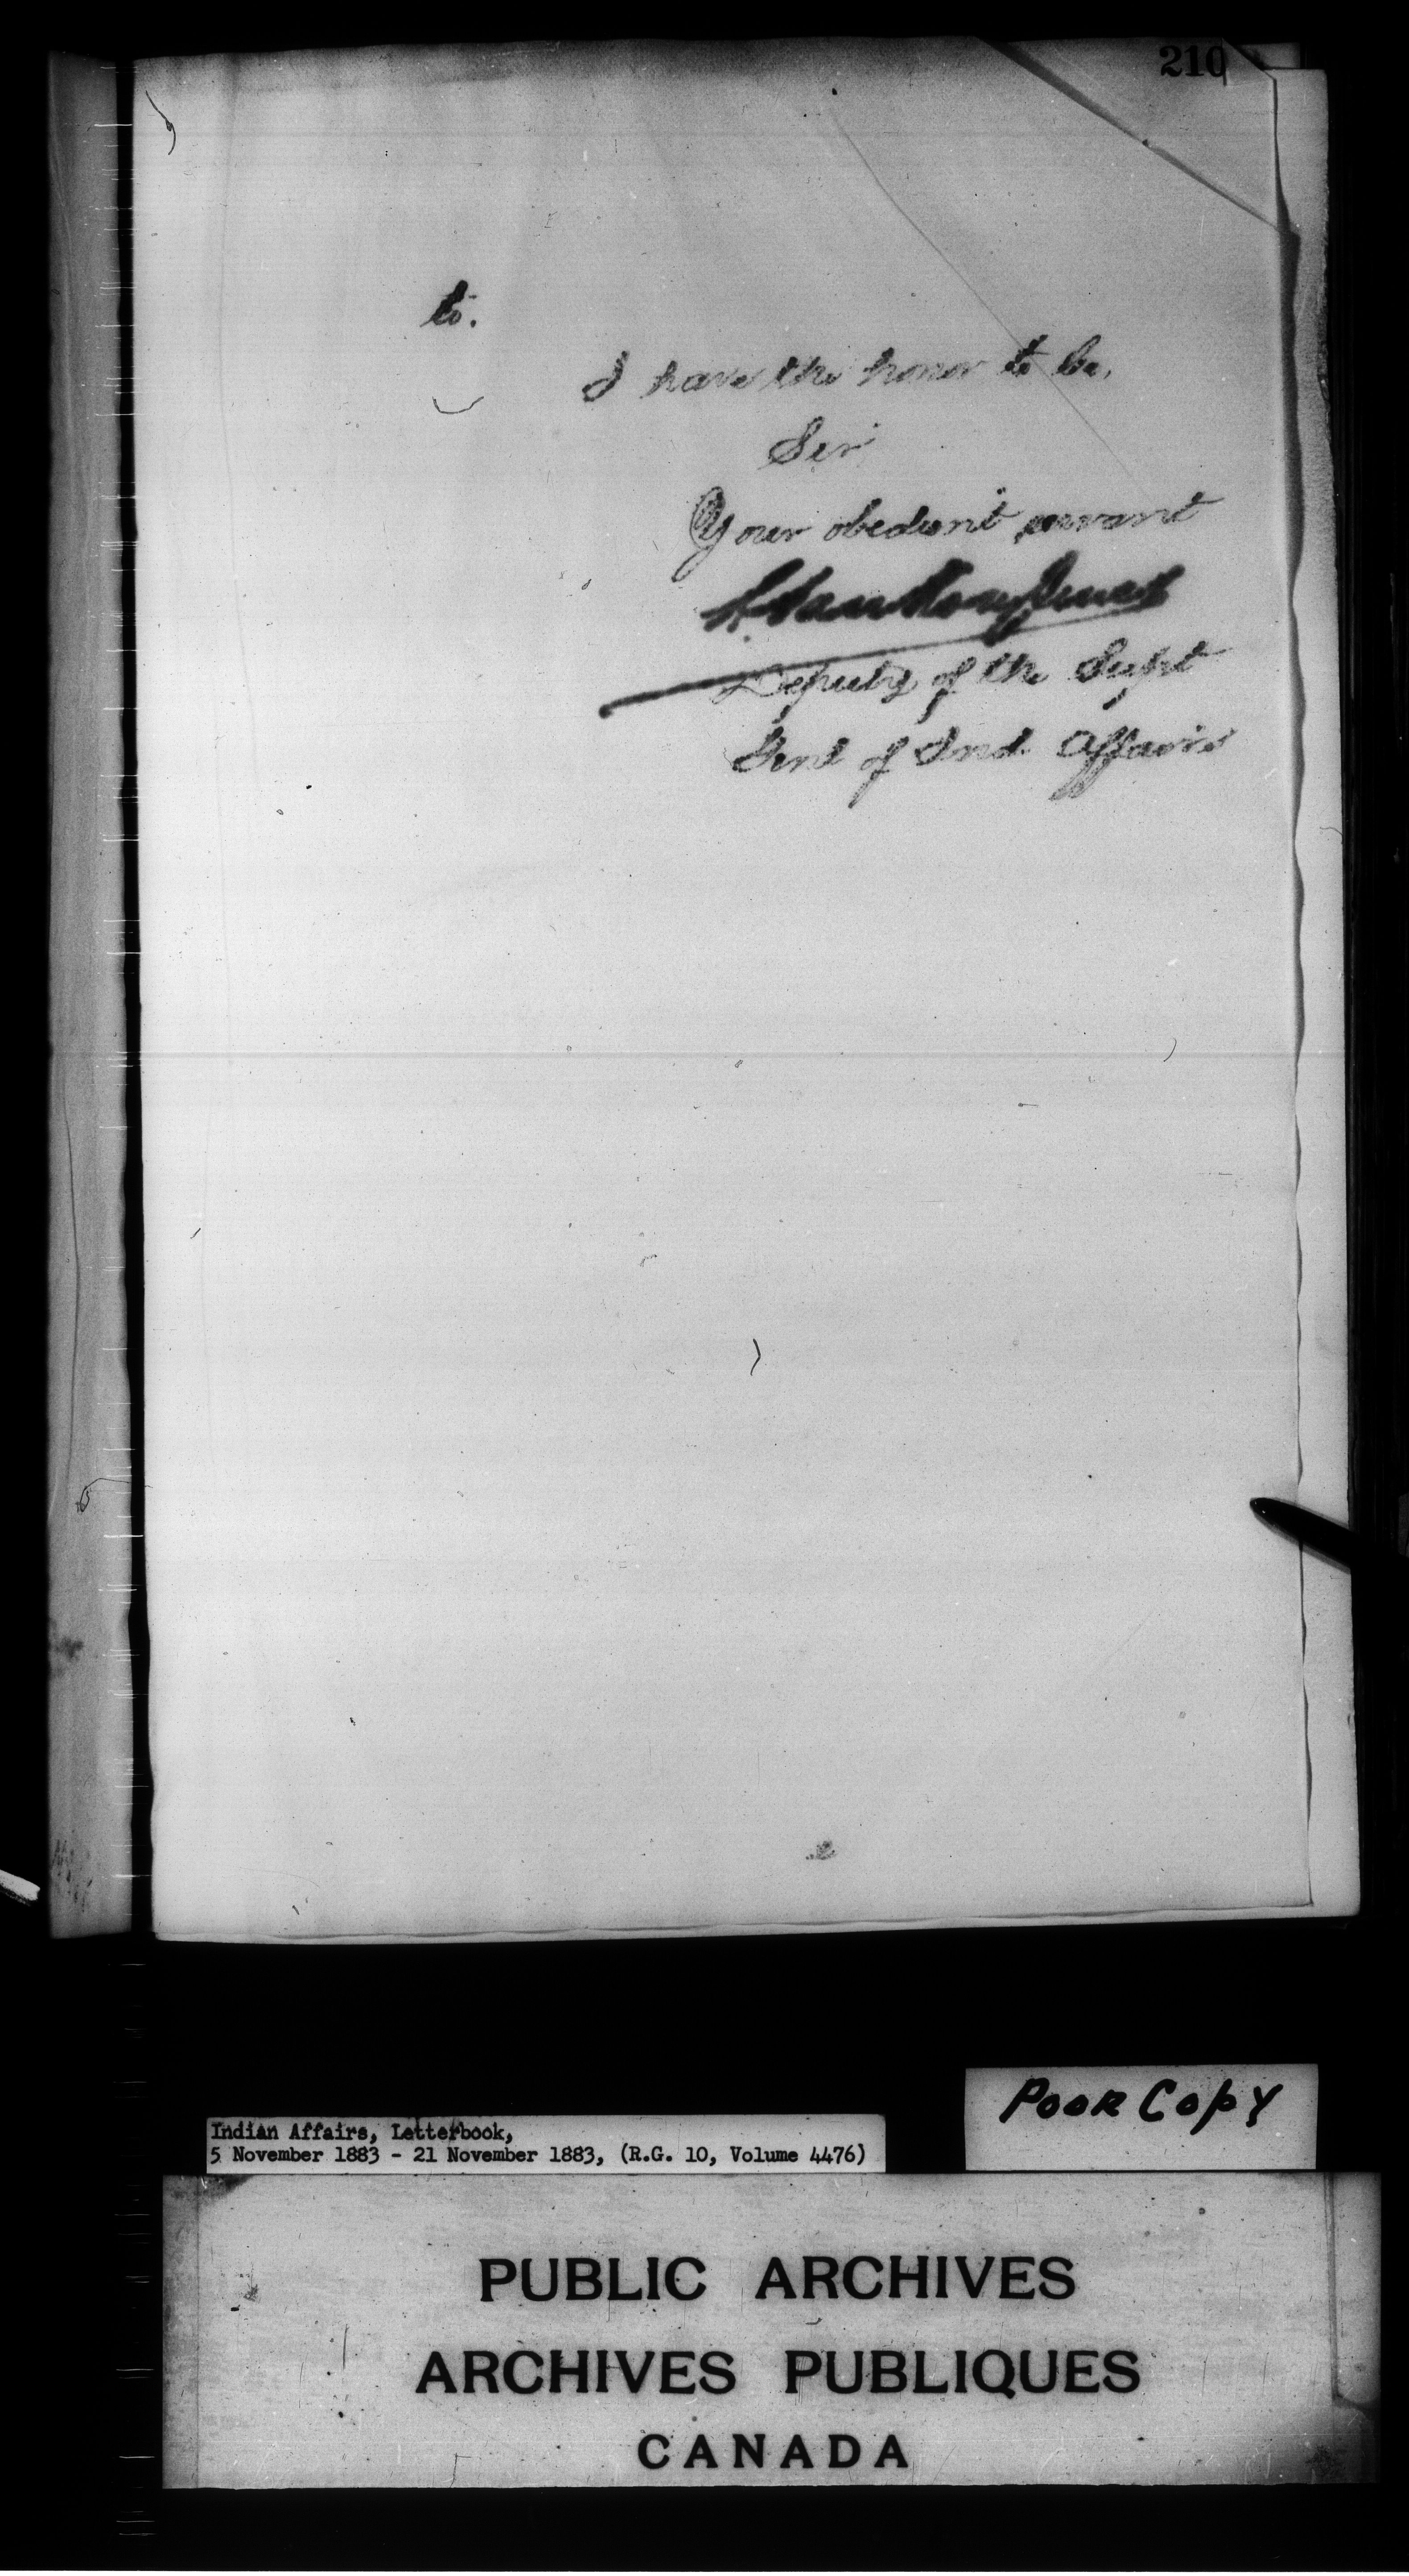 210
to.
I have the honor to be,
Sir
Your obedient servant
L VanKoughnet
Deputy of the Supt
Genl of Ind. Affairs
Poor Copy
Indian Affairs, Letterbook,
5 November 1883 - 21 November 1883, (R.G. 10, Volume 4476)
PUBLIC ARCHIVES
ARCHIVES PUBLIQUES
CANADA